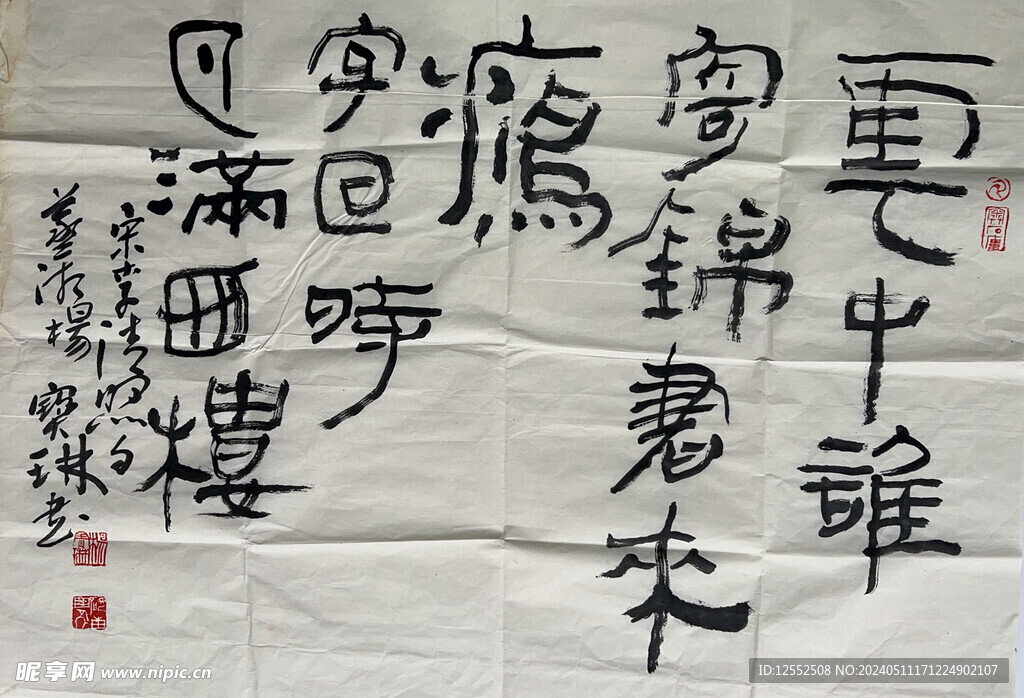 雲中誰
寄錦書來
鴈
字回時
月滿西樓
宋李清照句
蒸湘楊寶琳書
昵享网 www.nipic.cn
ID:12552508 NO:20240511171224902107